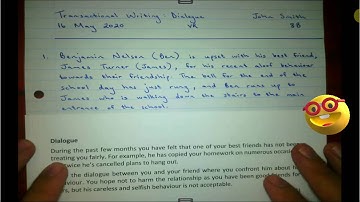 Transactional Writing: Dialogue John Smith
16 May 2020 8B
1. Benjamin Nelson (Ben) is upset with his best friend,
James Turner (James), for his recent aloof behaviour
towards their friendship. The bell for the end of the
school day has just rung, and Ben runs up to
James who is walking down the stairs to the main
entrance of the school.
Dialogue
During the past few months you have felt that one of your best friends has not been
treating you fairly. For example, he has copied your homework on numerous occasions
twice he's cancelled plans to hang out.
the dialogue between you and your friend where you confront him about h
aviour. You hope not to harm the relationship as you have been good friends for
ars, but his careless and selfish behaviour is not acceptable.